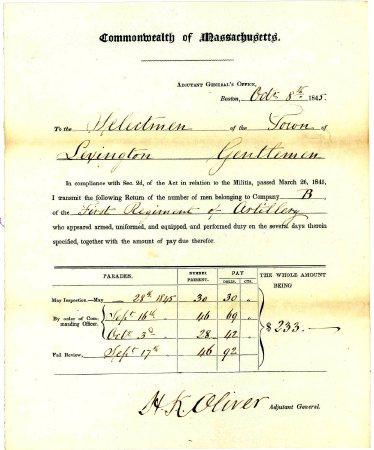 Commonwealth of Massachusetts.
ADJUTANT GENERAL'S OFFICE,
Boston, Octr. 8th. 1845.
To the Selectmen of the Town of
Lexington Gentlemen
In compliance with Sec. 2d, of the Act in relation to the Militia, passed March 26, 1845,
I transmit the following Return of the number of men belonging to Company B,
of the First Regiment of Artillery
who appeared armed, uniformed, and equipped, and performed duty on the several days therein
specified, together with the amount of pay due therefor.
PARADES. NUMBER PRESENT. PAY THE WHOLE AMOUNT BEING
DOLLS. CTS.
May Inspection.—May 28th 1845 30 30 "
By order of Commanding Officer. Septr 16th 46 69 "
Octr. 3d 28 42 "
Fall Review, Septr 17th 46 92 "
$233.—
H. K. Oliver Adjutant General.